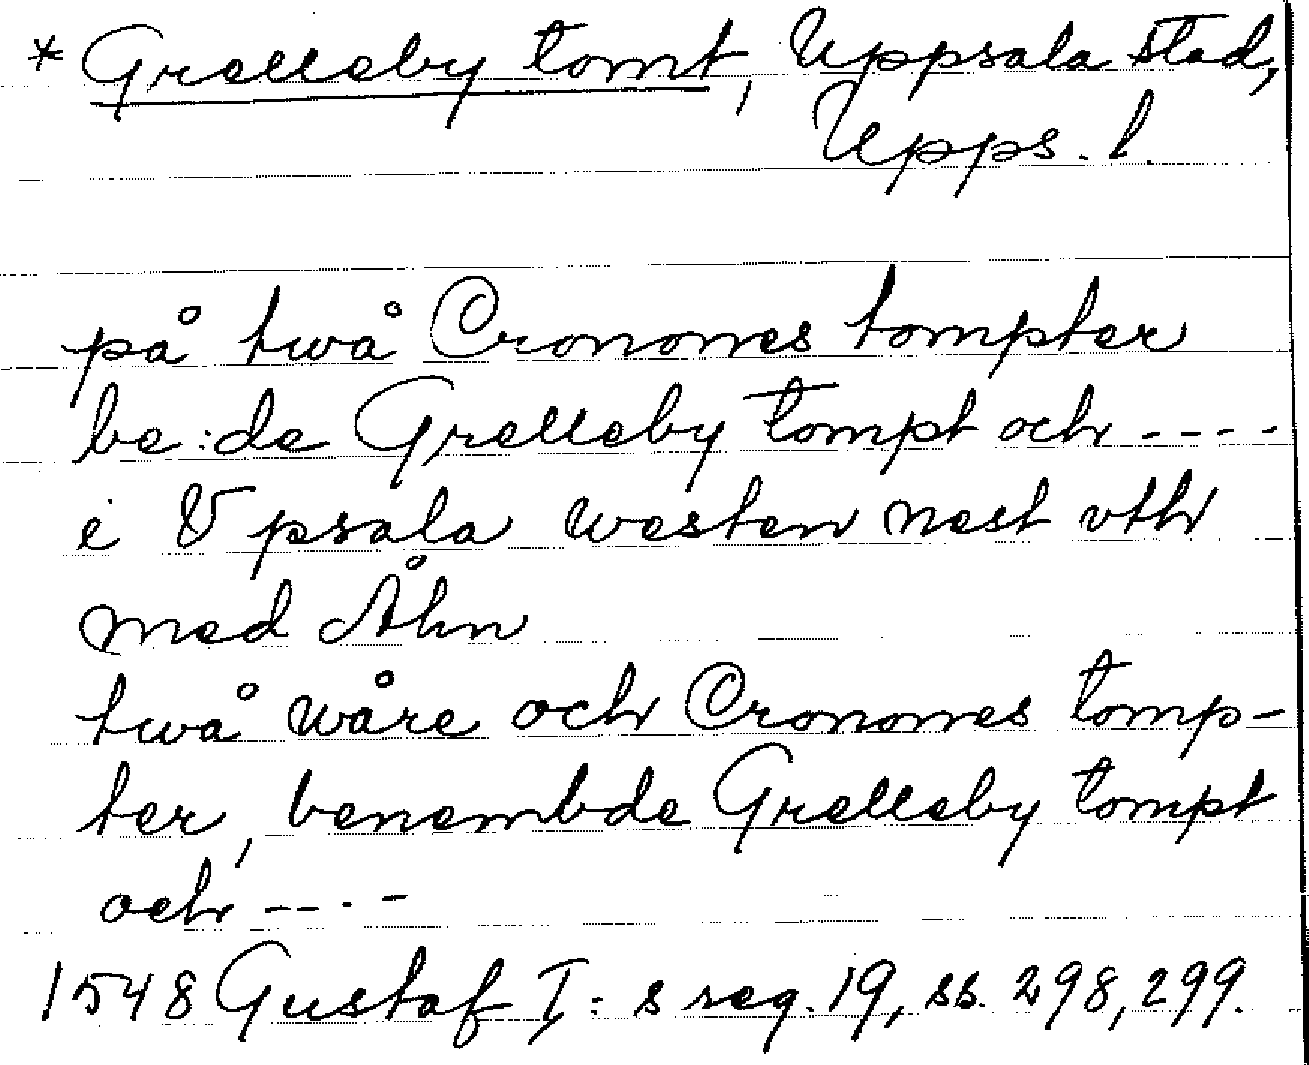 * Grelleby tomt, Uppsala stad,
Upps. l.
på twå Cronones tompter
be:de Grelleby tompt och ----
i Vpsala westen nest vth
med Åhn
twå wåre och Cronones tomp-
ter, benembde Grelleby tompt
och ----
1548 Gustaf I:s reg. 19, ss. 298, 299.